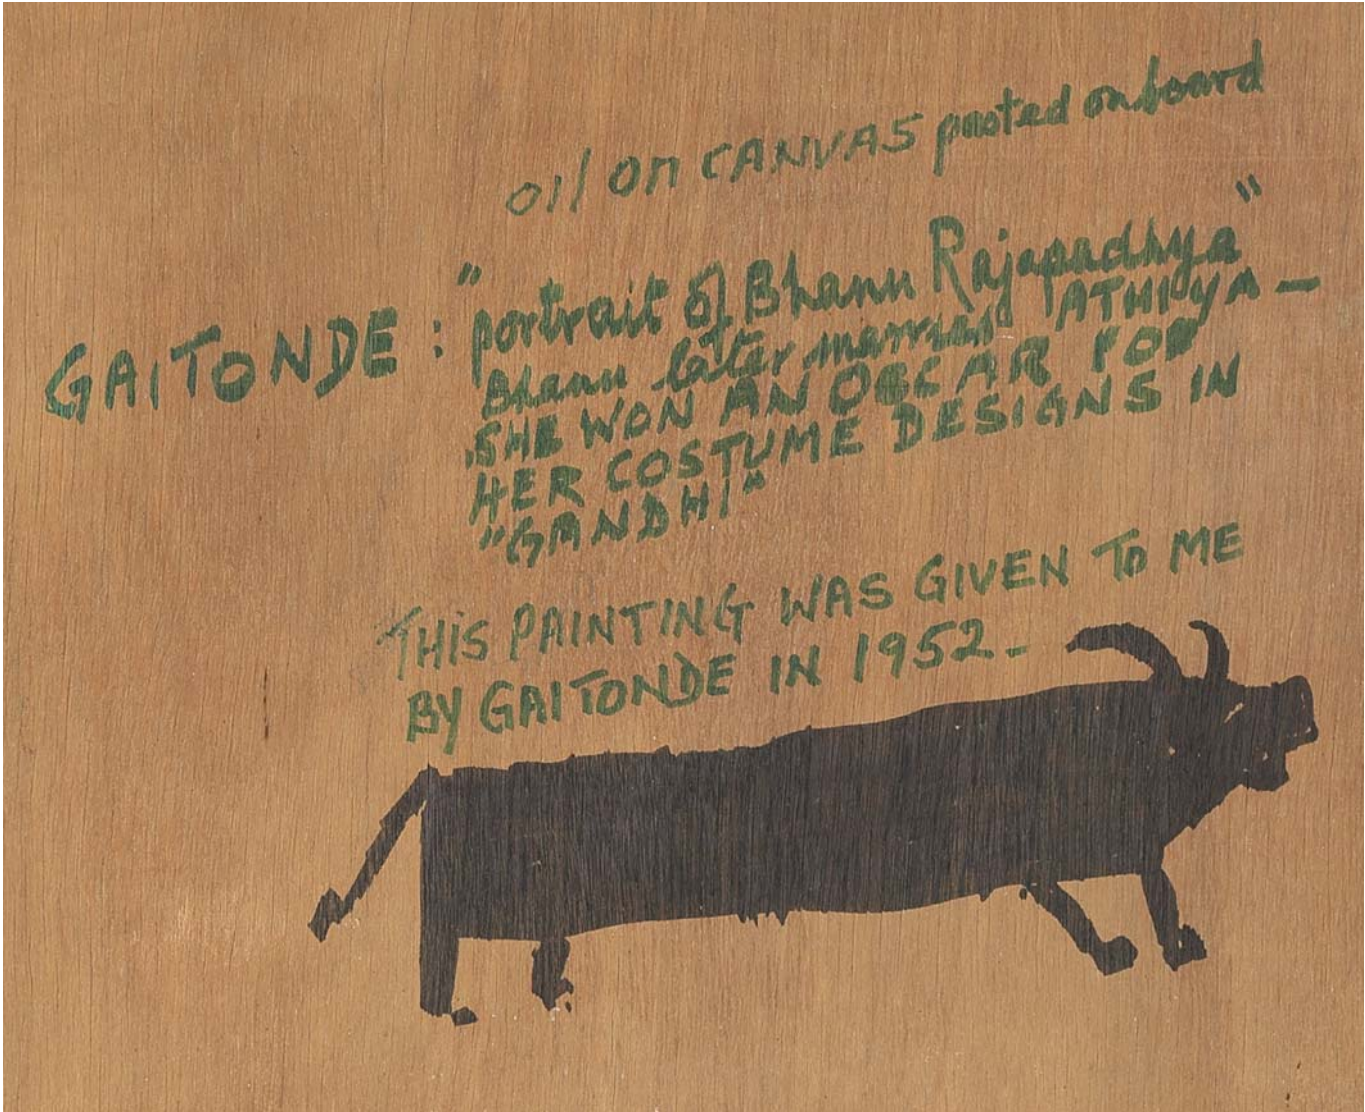 oil on CANVAS pasted on board
GAITONDE : "portrait of Bhanu Rajapadhya"
Bhanu later married ATHIYA —
SHE WON AN OSCAR FOR
HER COSTUME DESIGNS IN
"GANDHI"
THIS PAINTING WAS GIVEN TO ME
BY GAITONDE IN 1952 -